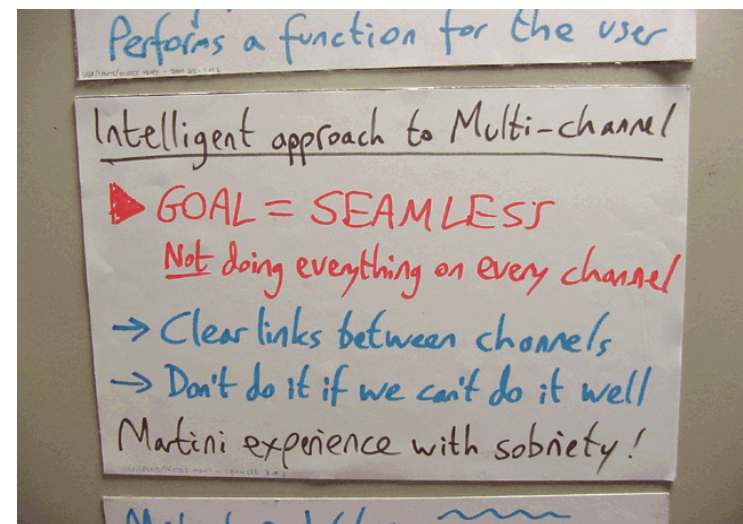 Performs a function for the user
Intelligent approach to Multi-channel
GOAL = SEAMLESS
Not doing everything on every channel
→ Clear links between channels
→ Don't do it if we can't do it well
Martini experience with sobriety!